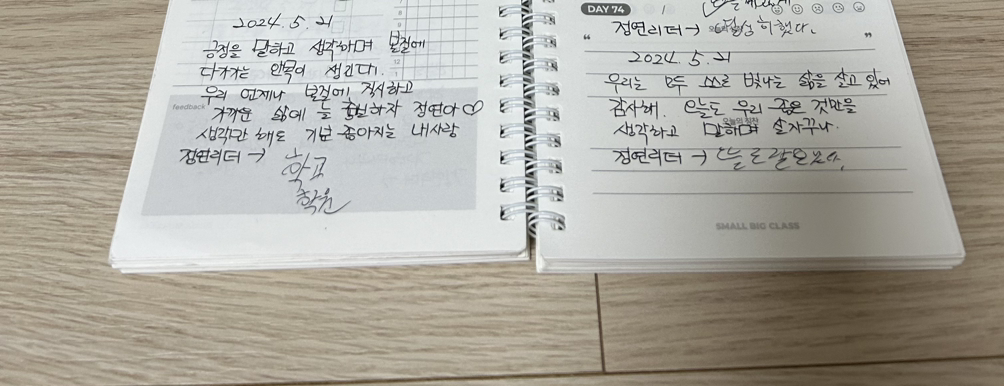 2024. 5. 21
긍정을 말하고 생각하며 본질에
다가가는 안목이 생긴다.
우리 언제나 본질에 직시하고
feedback
가까운 삶에 늘 충실하자 정연아♡
생각만 해도 기분 좋아지는 내사랑
정연리더 →
학교
학원
DAY 74
/
“ 정연리더 → 열심히 했다. ”
2024. 5. 21
우리는 모두 스스로 빛나는 삶을 살고 있어
감사해. 오늘도 우리 좋은 것만을
오늘의 칭찬
생각하고 말하며 살자꾸나.
정연리더 →
SMALL BIG CLASS